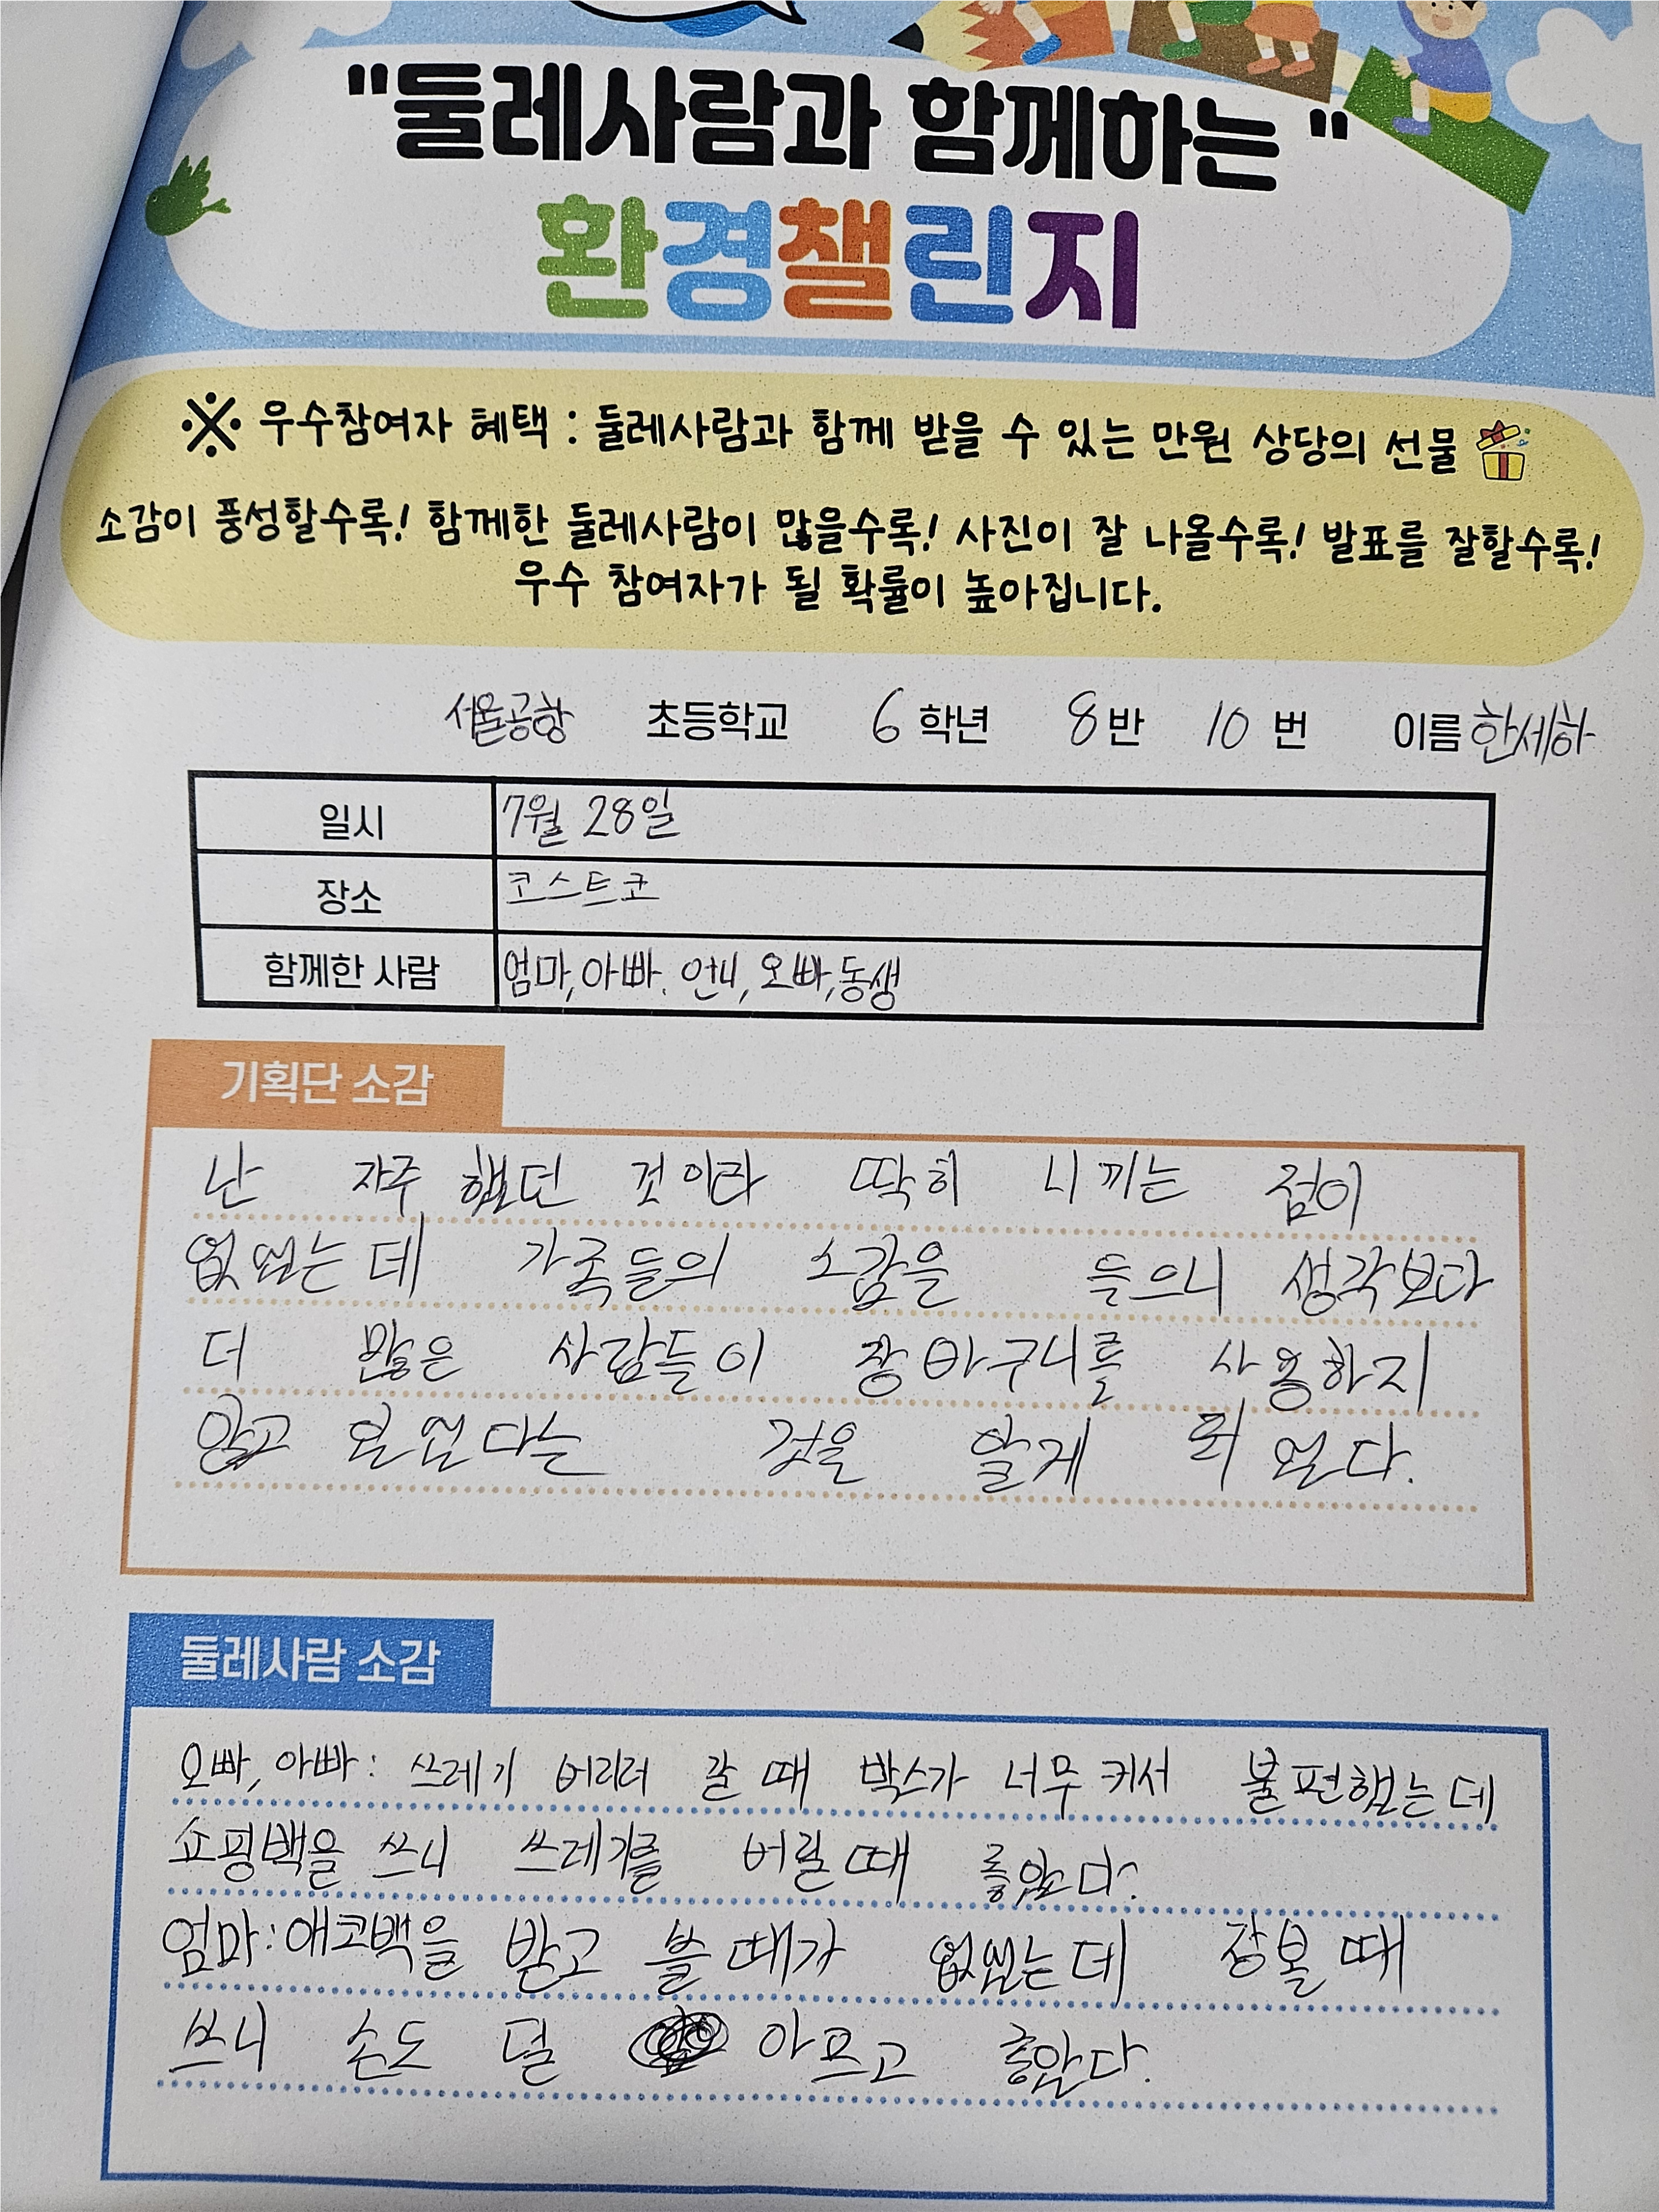 "둘레사람과 함께하는 "
환경챌린지
※ 우수참여자 혜택 : 둘레사람과 함께 받을 수 있는 만원 상당의 선물
소감이 풍성할수록! 함께한 둘레사람이 많을수록! 사진이 잘 나올수록! 발표를 잘할수록!
우수 참여자가 될 확률이 높아집니다.
서울공항 초등학교 6 학년 8 반 10 번 이름 한세하
일시 7월 28일
장소 코스트코
함께한 사람 엄마, 아빠. 언니, 오빠, 동생
기획단 소감
난 자주 했던 것이라 딱히 니끼는 점이
없었는데 가족들의 소감을 들으니 생각보다
더 많은 사람들이 장바구니를 사용하지
않고 있었다는 것을 알게 되었다.
둘레사람 소감
오빠, 아빠 : 쓰레기 버리러 갈 때 박스가 너무 커서 불편했는데
쇼핑백을 쓰니 쓰레기를 버릴 때 좋았다.
엄마 : 애코백을 받고 쓸 때가 없었는데 장볼 때
쓰니 손도 덜 아프고 좋았다.